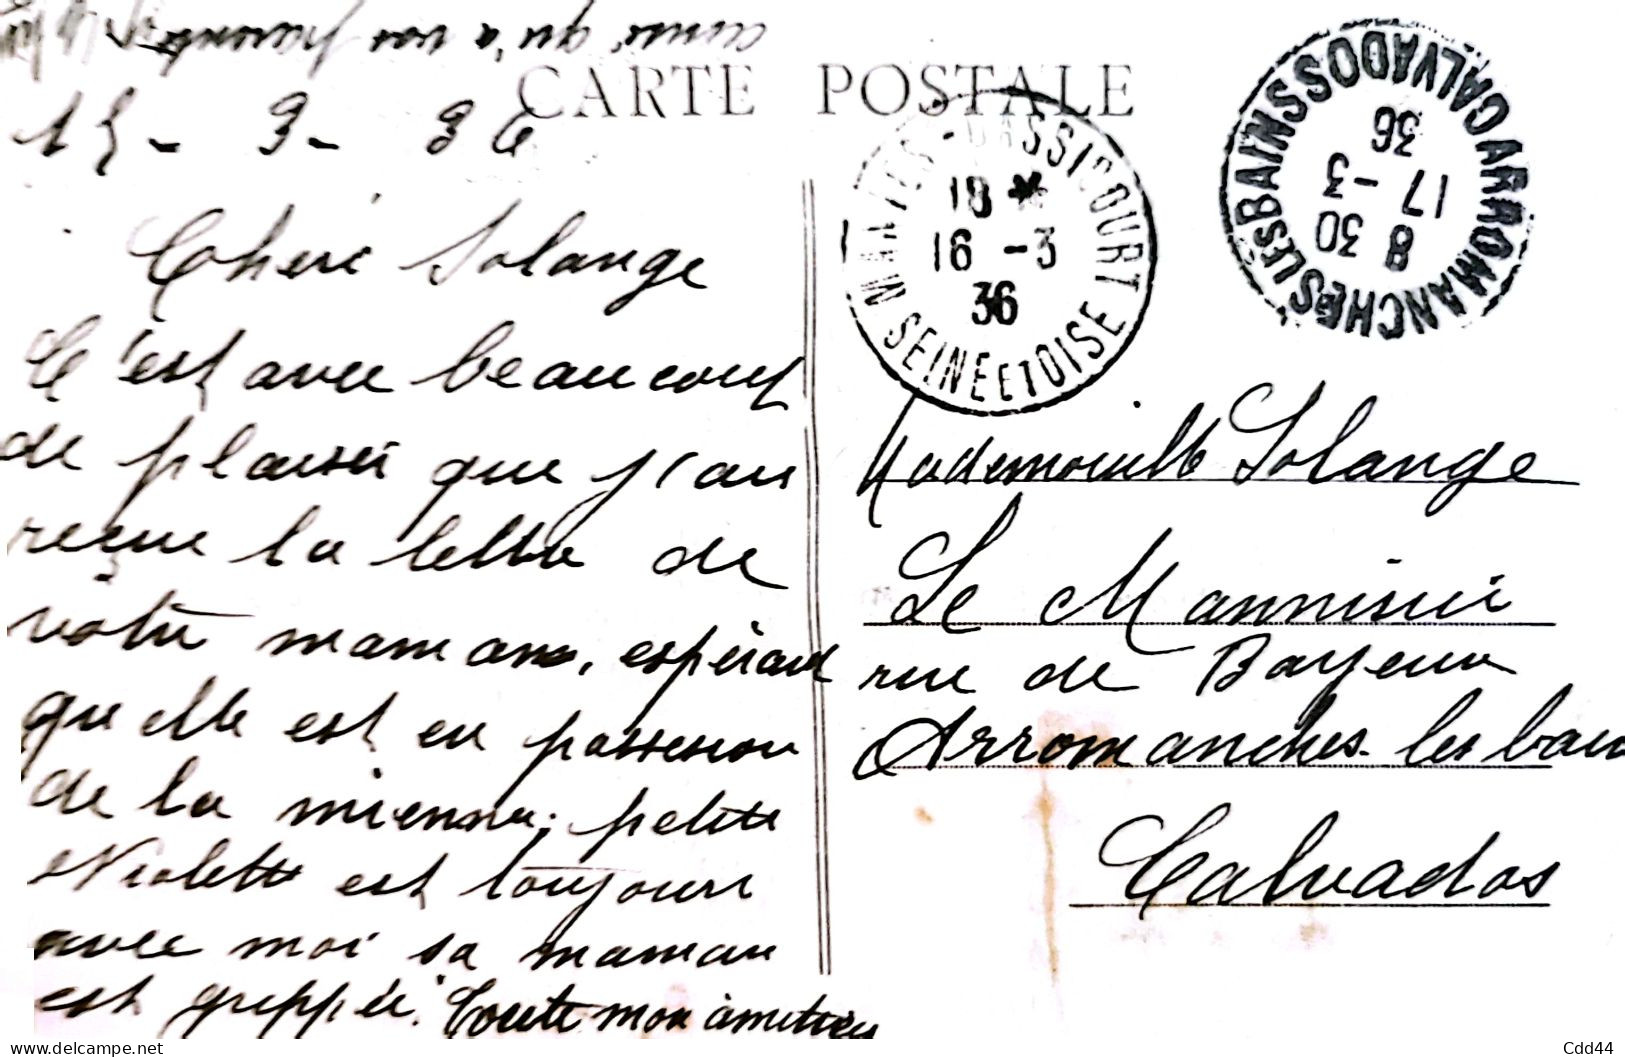 CARTE POSTALE
15 - 3 - 36
Cheré Solange
C'est avec beaucoup
de plaisir que j'ai
reçue la lettre de
votre maman, espérant
qu'elle est en possession
de la mienne; petite
Violette est toujours
avec moi sa maman
est grippée. Toute mon amitiés
ainsi qu'a vos parents
MANTES-GASSICOURT
18 *
16 -3
36
SEINE ET OISE
ARROMANCHES LES BAINS
CALVADOS
8 30
17 -3
36
Mademoiselle Solange
Le Mannisier
rue de Bayeux
Arromanches-les bain
Calvados
Cdd44